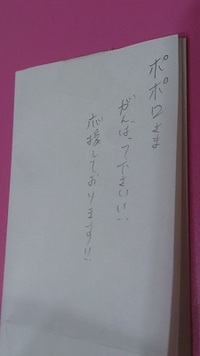 ポポロさま
がんばって下さいい!!
応援しております!!